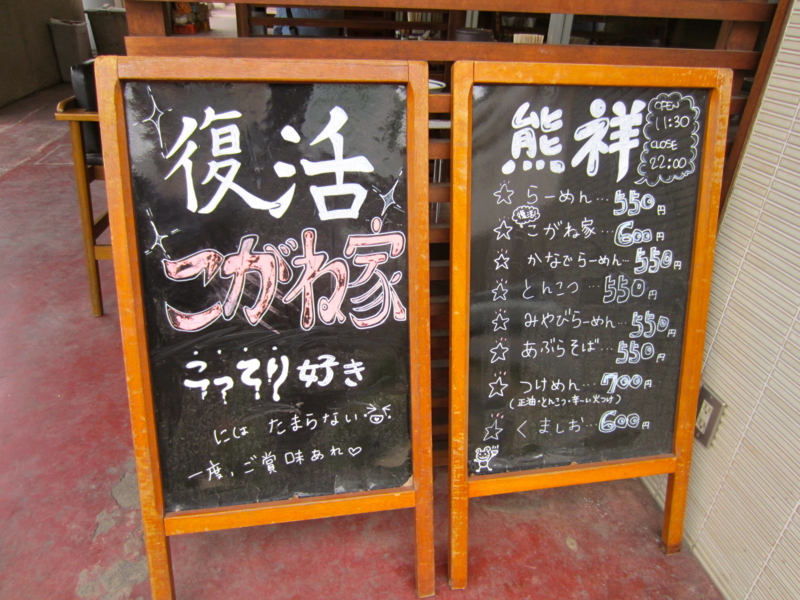 復活
こがね家
こってり好き
にはたまらない
一度、ご賞味あれ♡
熊祥
OPEN
11:30
CLOSE
22:00
☆らーめん…550円
復活!
☆こがね家…600円
☆かなでらーめん…550円
☆とんこつ…550円
☆みやびらーめん…550円
☆あぶらそば…550円
☆つけめん…700円
(正油・とんこつ・辛〜い火つけ)
☆くましお…600円